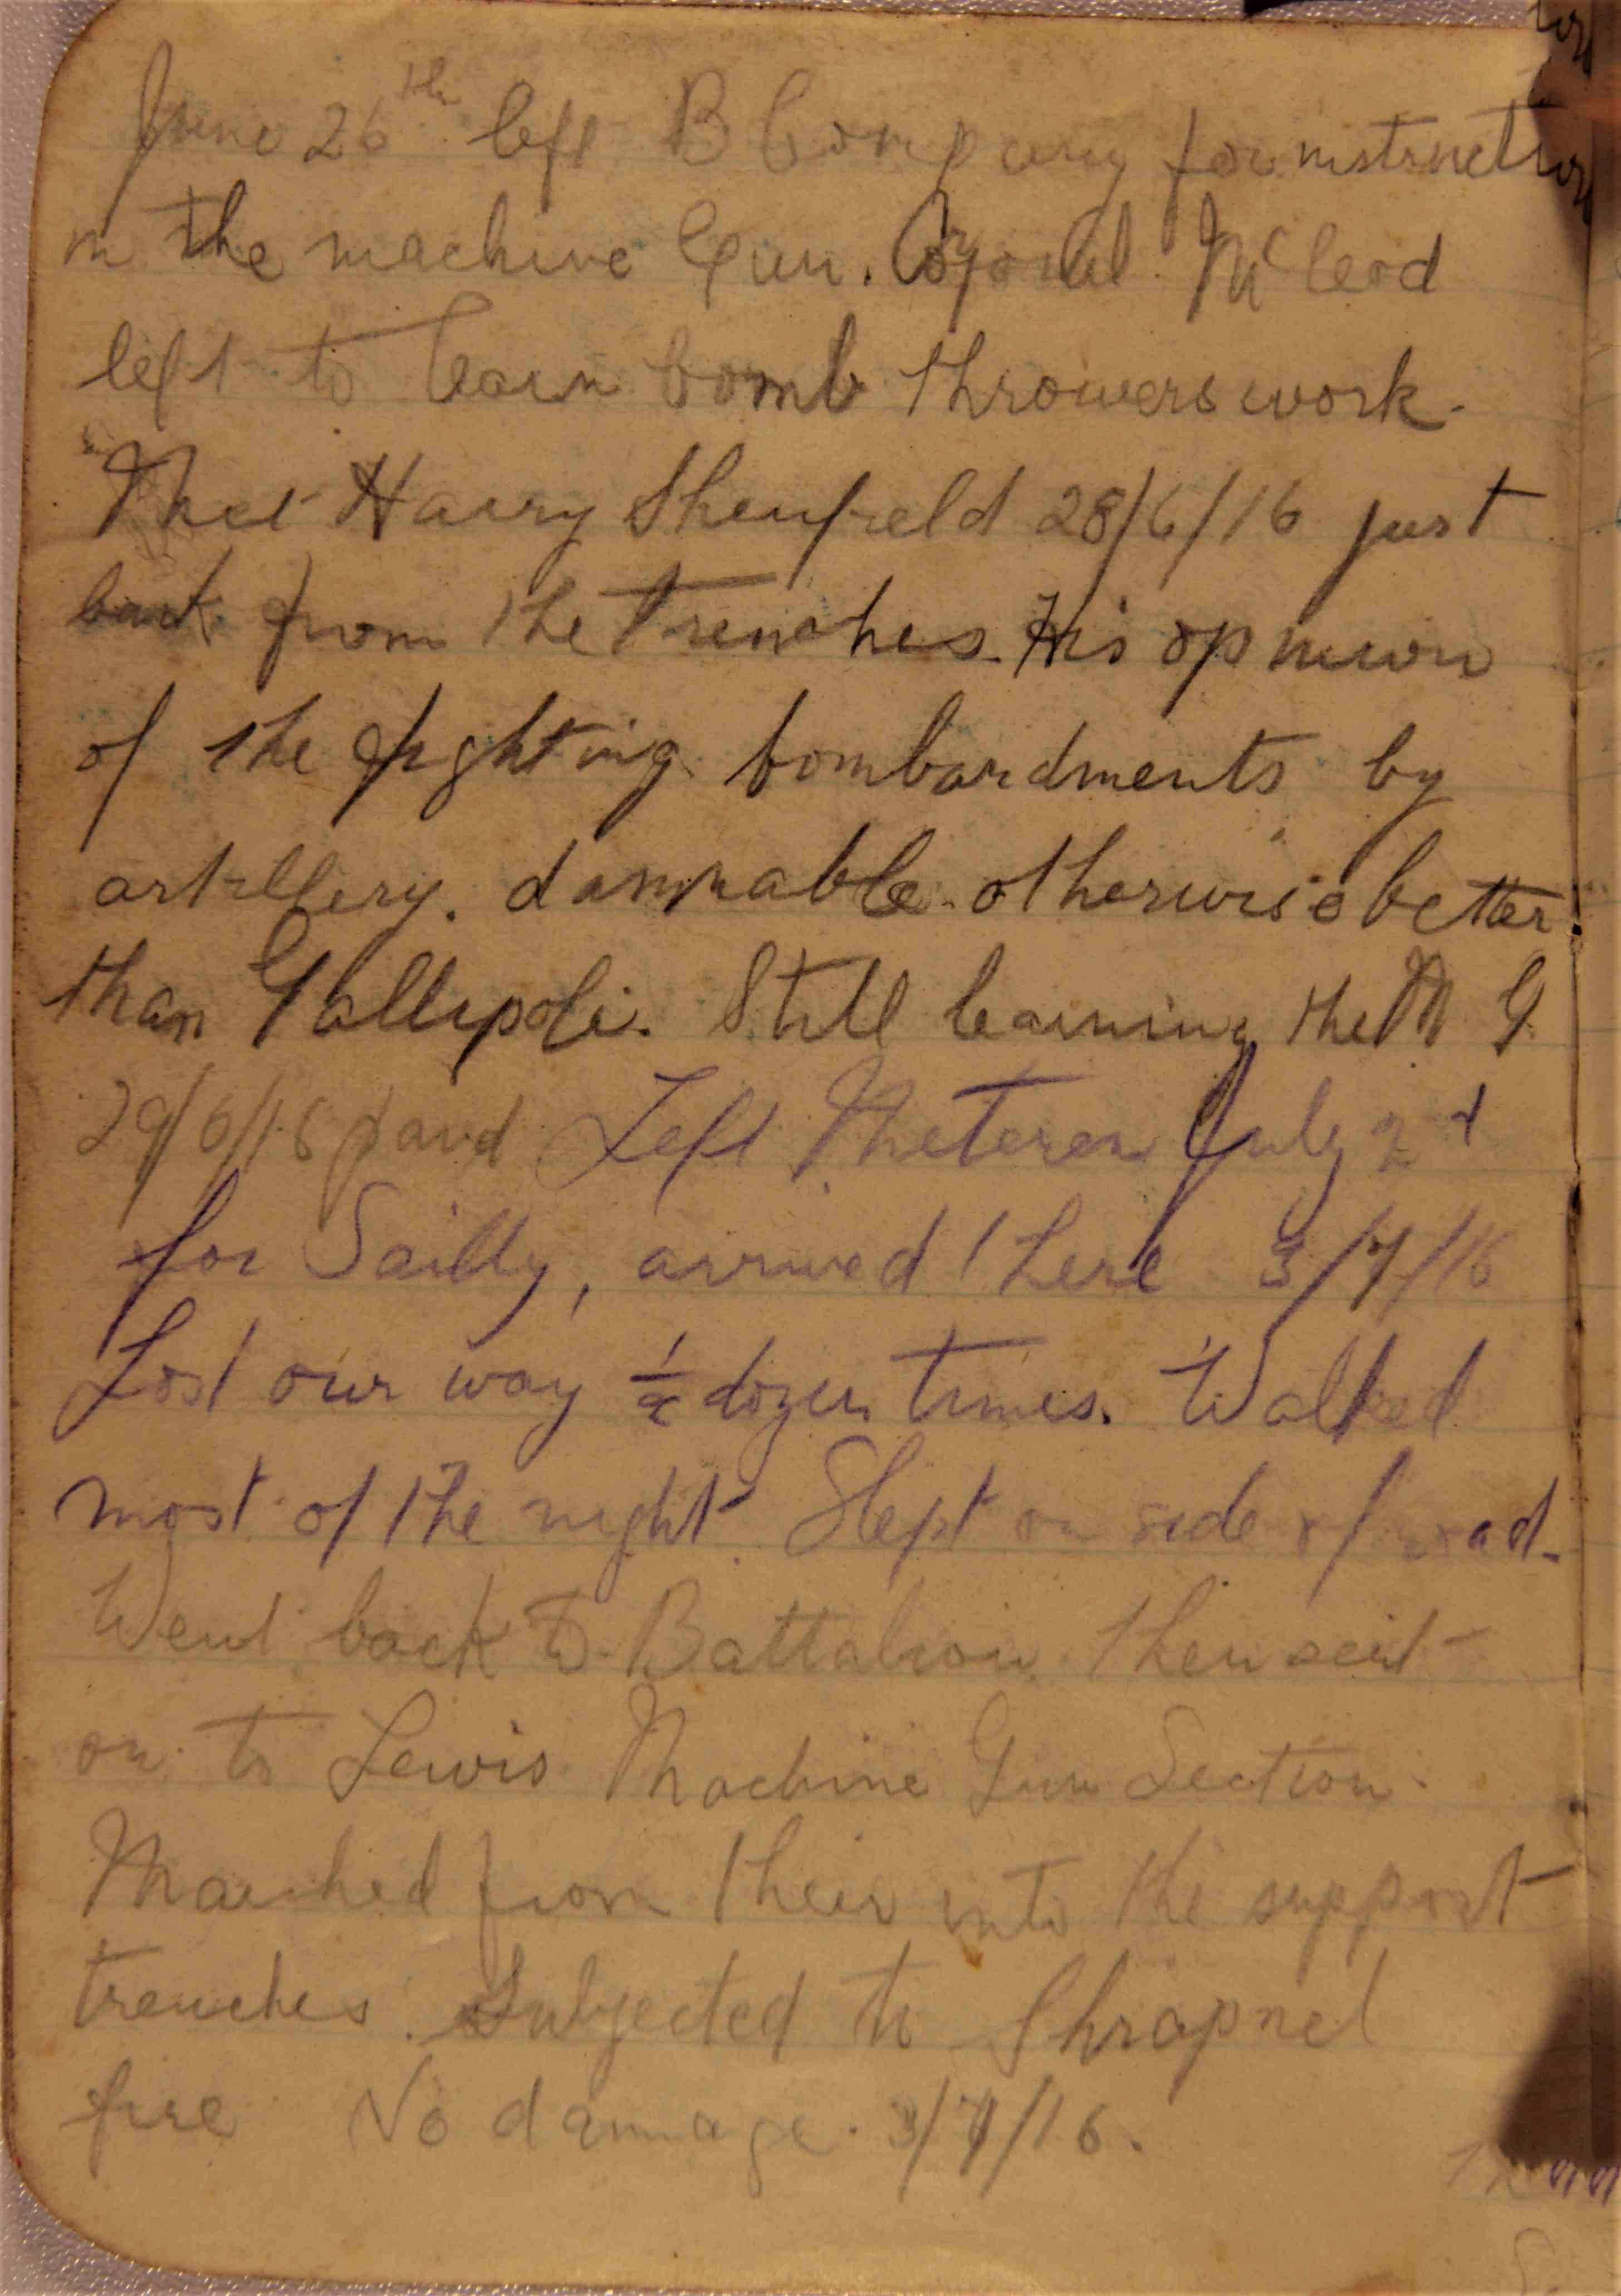 June 26th left B Company for instruction
in the machine Gun. Corporal McLeod
left to learn bomb throwers work.
Met Harry Shenfield 28/6/16 just
back from the Trenches. His opinion
of the fighting bombardments by
artillery. damnable otherwise better
than Gallipoli. Still learning the M G
29/6/16 paid Left Meteren July 2d
for Sailly, arrived there 3/7/16
Lost our way 1/2 dozen times. Walked
most of the night. Slept on side of road.
Went back to Battalion then sent
on to Lewis Machine Gun Section.
Marched from their into the support
trenches. Subjected to Shrapnel
fire No damage. 3/7/16.